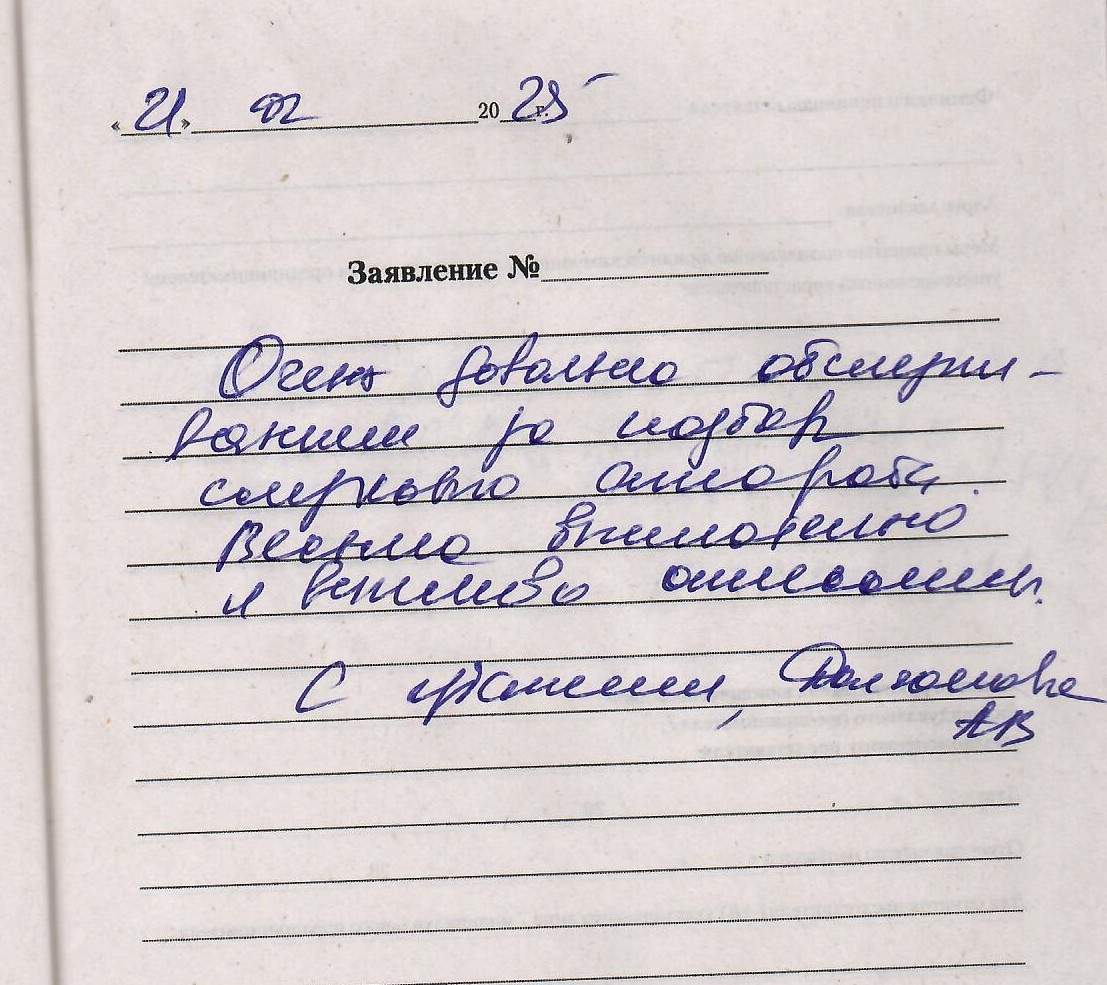 «21» 02 2025 г.
Заявление №
Очень довольна обслужи-
ванием за подбор
слухового аппарата.
Весьма внимательно
и вежливо отнеслись.
С уважением,
АВ